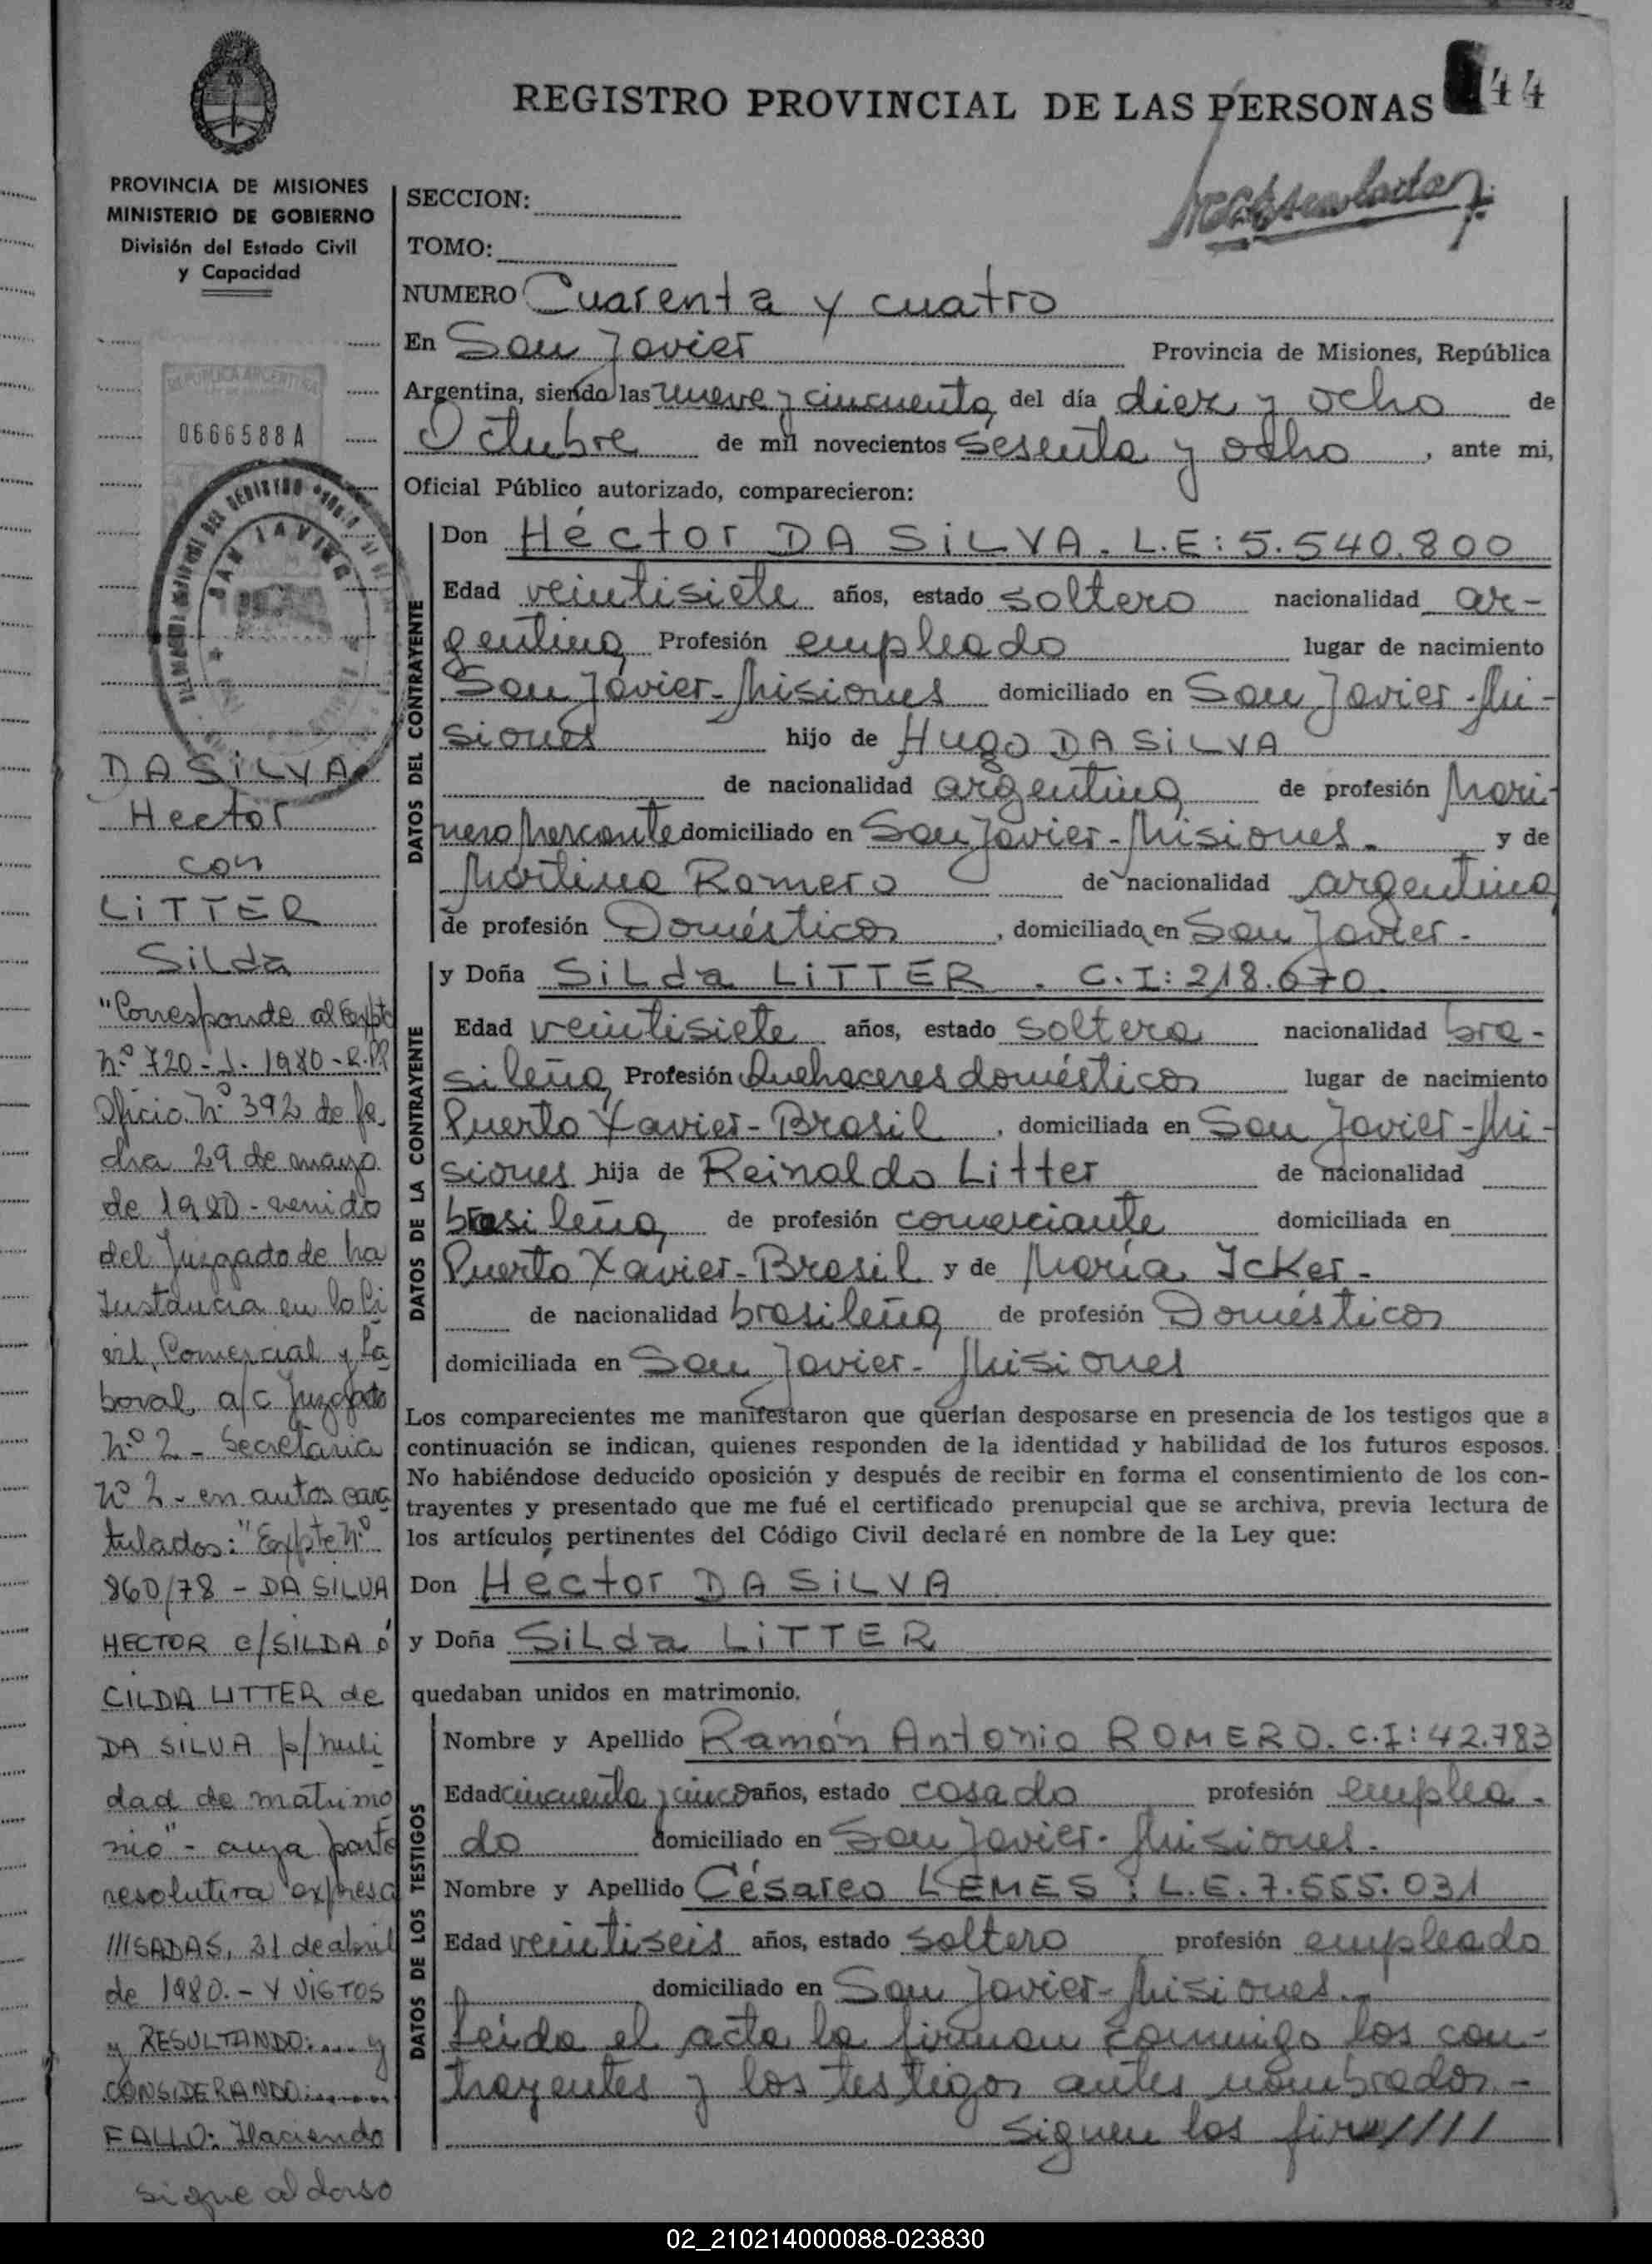 REGISTRO PROVINCIAL DE LAS PERSONAS
44
PROVINCIA DE MISIONES
MINISTERIO DE GOBIERNO
División del Estado Civil
y Capacidad
REPUBLICA ARGENTINA
0666588A
SAN JAVIER
DA SILVA
Hector
con
LITTER
Silda
"Corresponde al Expte
Nº 720-J-1980-R.PP
Oficio Nº 392 de fe
cha 29 de mayo
de 1980 - venido
del Juzgado de 1ra
Instancia en lo Ci
vil, Comercial y La
boral, a/c Juzgado
Nº 2 - Secretaria
Nº 2 - en autos cara
tulados: "Expte Nº
860/78 - DA SILVA
HECTOR c/SILDA ó
CILDA LITTER de
DA SILVA p/nuli
dad de matrimo
nio" - cuya parte
resolutiva expresa
///SADAS, 21 de abril
de 1980.- Y VISTOS
y RESULTANDO:.... y
CONSIDERANDO:.......
FALLO: Haciendo
sigue al dorso
SECCION:
TOMO:
NUMERO Cuarenta y cuatro
En San Javier Provincia de Misiones, República
Argentina, siendo las nueve y cincuenta del día diez y ocho de
Octubre de mil novecientos sesenta y ocho, ante mi,
Oficial Público autorizado, comparecieron:
DATOS DEL CONTRAYENTE
Don Héctor DA SILVA. L.E: 5.540.800
Edad veintisiete años, estado soltero nacionalidad ar-
gentina Profesión empleado lugar de nacimiento
San Javier-Misiones domiciliado en San Javier-Mi-
siones hijo de Hugo DA SILVA
de nacionalidad argentina de profesión Mari-
nero Mercante domiciliado en San Javier-Misiones. y de
Martina Romero de nacionalidad argentina
de profesión Domésticos, domiciliada en San Javier.-
DATOS DE LA CONTRAYENTE
y Doña Silda LITTER. C.I: 218.670
Edad veintisiete años, estado soltera nacionalidad bra-
sileña Profesión Quehaceres domésticos lugar de nacimiento
Puerto Xavier-Brasil, domiciliada en San Javier-Mi-
siones hija de Reinaldo Litter de nacionalidad
brasileña de profesión comerciante domiciliada en
Puerto Xavier-Brasil y de María Icker.-
de nacionalidad brasileña de profesión Domésticos
domiciliada en San Javier-Misiones
Los comparecientes me manifestaron que querían desposarse en presencia de los testigos que a
continuación se indican, quienes responden de la identidad y habilidad de los futuros esposos.
No habiéndose deducido oposición y después de recibir en forma el consentimiento de los con-
trayentes y presentado que me fué el certificado prenupcial que se archiva, previa lectura de
los artículos pertinentes del Código Civil declaré en nombre de la Ley que:
Don Hector DA SILVA
y Doña Silda LITTER
quedaban unidos en matrimonio.
DATOS DE LOS TESTIGOS
Nombre y Apellido Ramón Antonio ROMERO. C.I: 42.783
Edad cincuenta y cinco años, estado casado profesión emplea-
do domiciliado en San Javier-Misiones.
Nombre y Apellido Césareo LEMES: L.E. 7.555.031
Edad veintiseis años, estado soltero profesión empleado
domiciliado en San Javier-Misiones.-
Leída el acta la firman conmigo los con-
trayentes y los testigos antes nombrados.-
Siguen las fir////
02_210214000088-023830